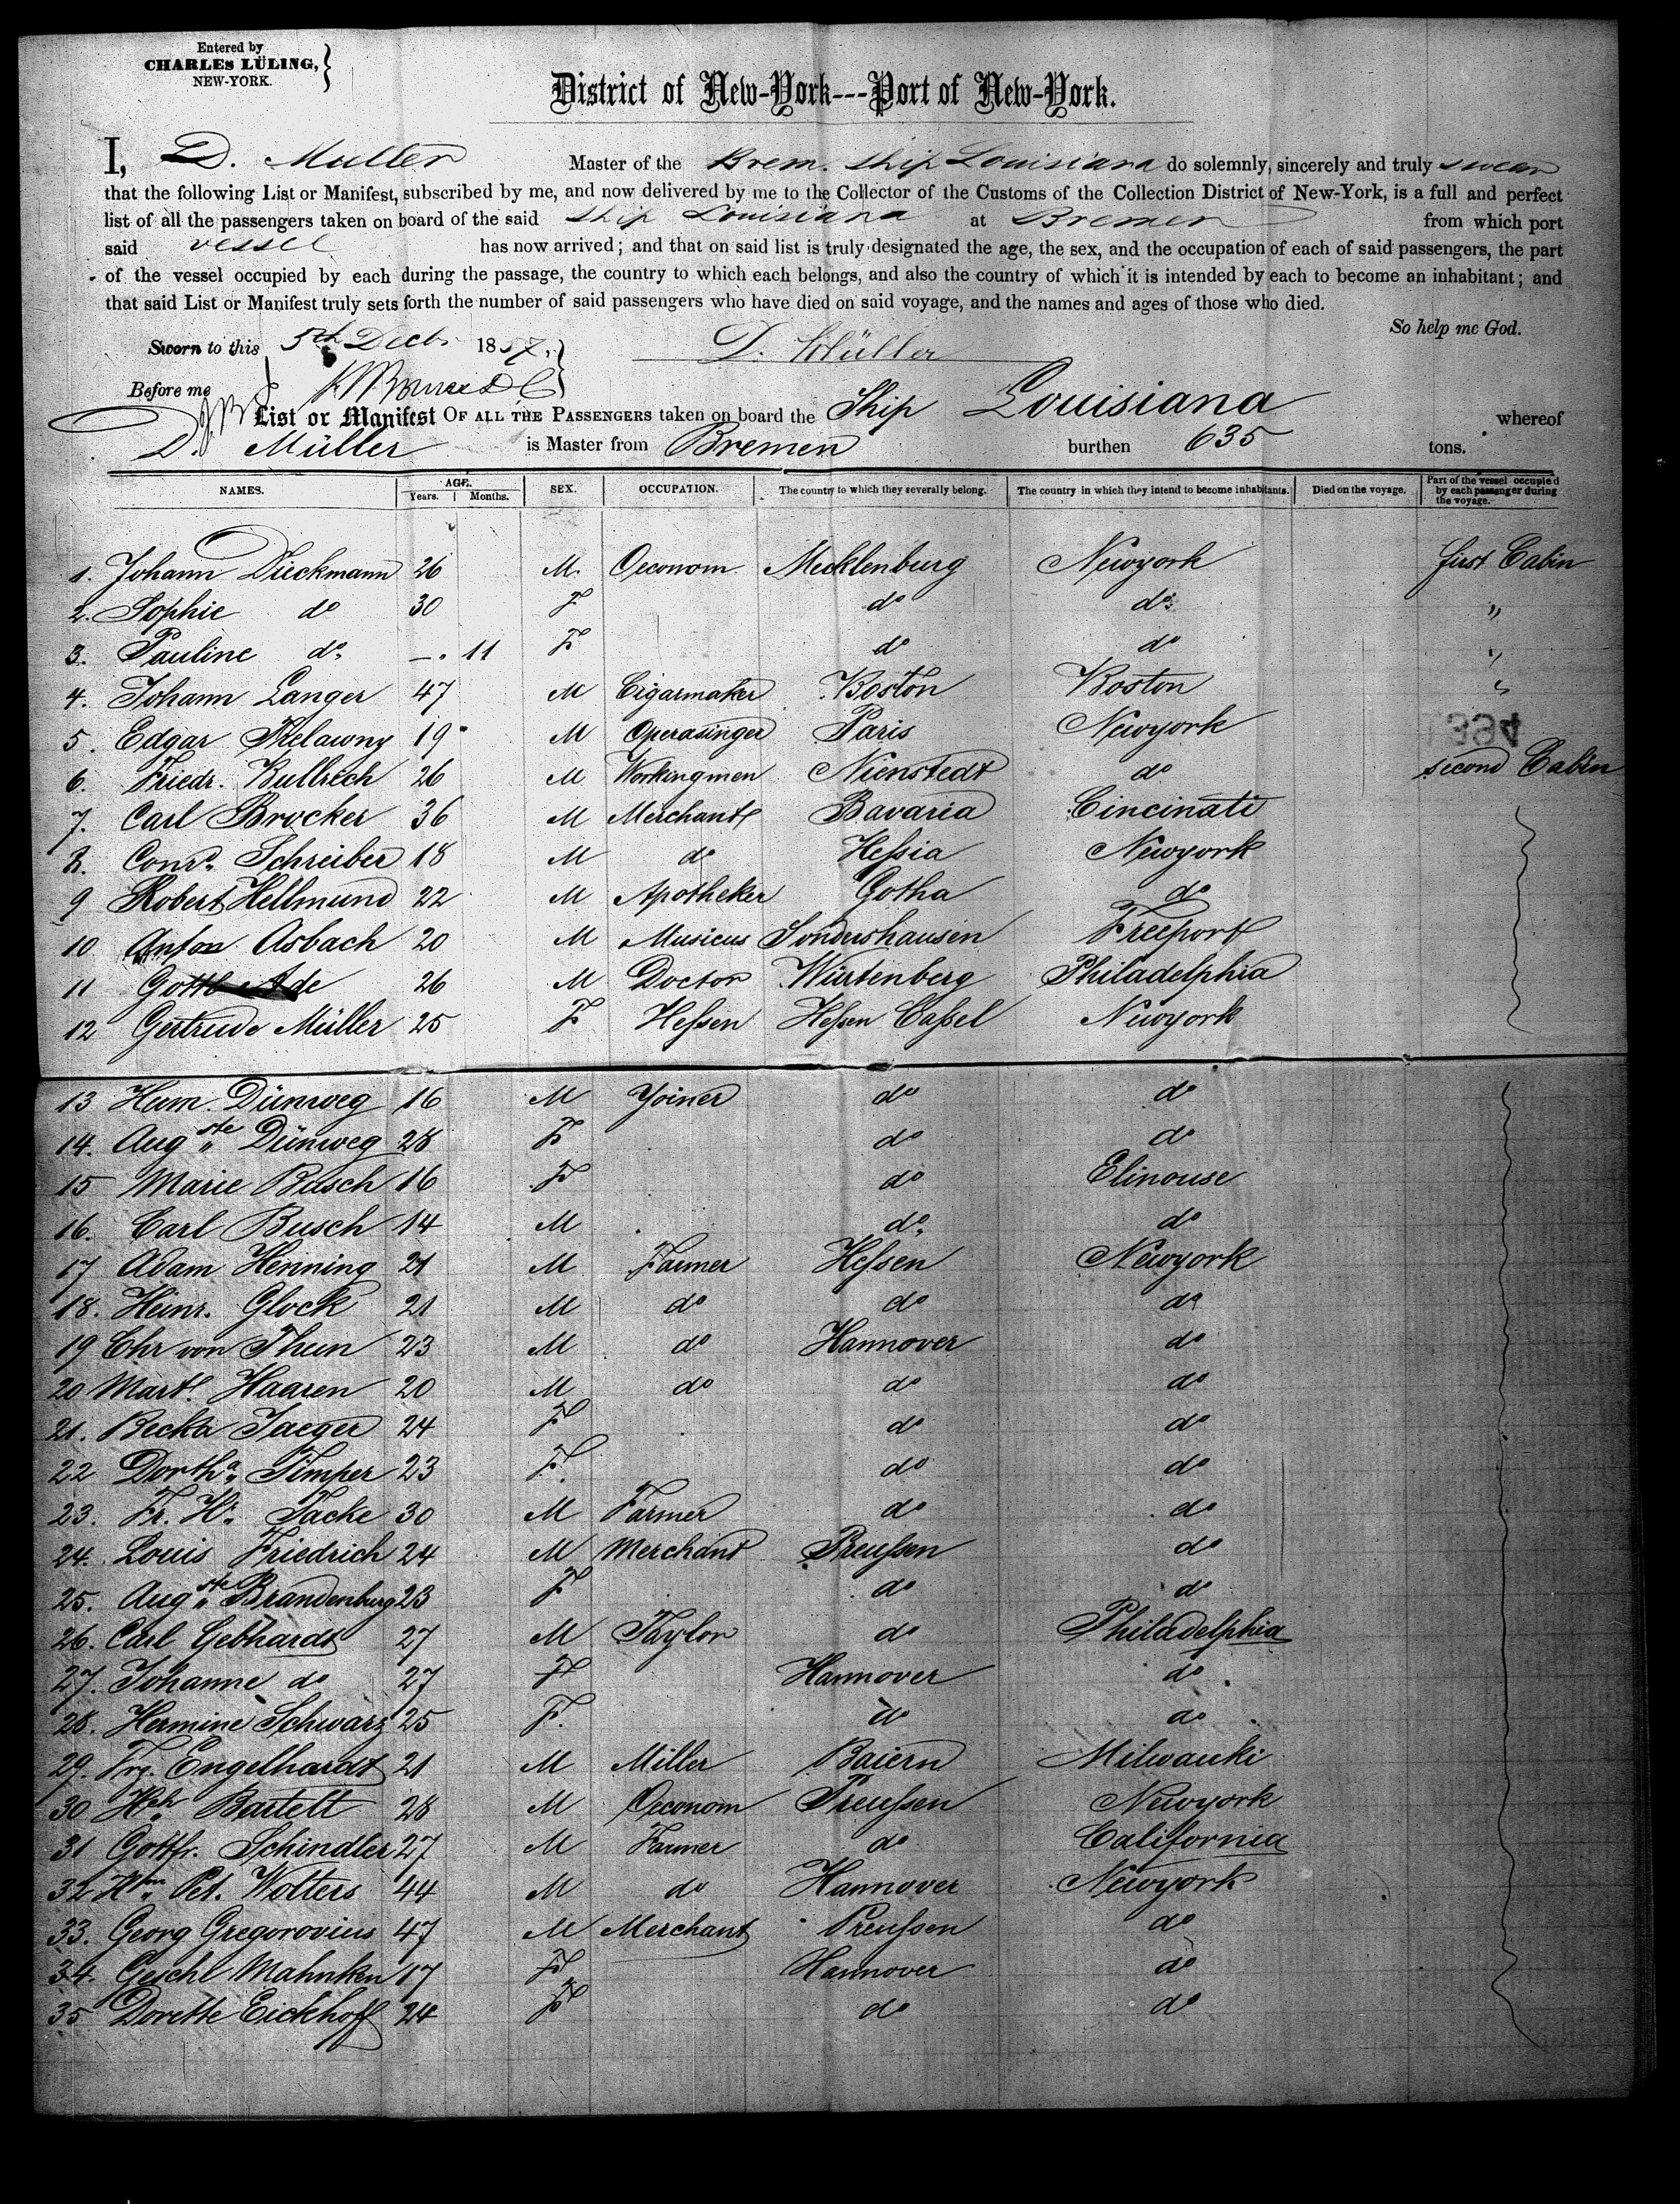 Entered by
CHARLES LÜLING,
NEW-YORK.
District of New-York---Port of New-York.
I, D. Muller Master of the Brem. Ship Louisiana do solemnly, sincerely and truly swear
that the following List or Manifest, subscribed by me, and now delivered by me to the Collector of the Customs of the Collection District of New-York, is a full and perfect
list of all the passengers taken on board of the said Ship Louisiana at Bremen from which port
said vessel has now arrived; and that on said list is truly designated the age, the sex, and the occupation of each of said passengers, the part
of the vessel occupied by each during the passage, the country to which each belongs, and also the country of which it is intended by each to become an inhabitant; and
that said List or Manifest truly sets forth the number of said passengers who have died on said voyage, and the names and ages of those who died.
So help me God.
Sworn to this 5th Decbr 1857, D. Müller
Before me
List or Manifest OF ALL THE PASSENGERS taken on board the Ship Louisiana whereof
D. Müller is Master from Bremen burthen 635 tons.
NAMES. AGE. Years. Months. SEX. OCCUPATION. The country to which they severally belong. The country in which they intend to become inhabitants. Died on the voyage. Part of the vessel occupied by each passenger during the voyage.
1. Johann Dieckmann 26 M. Oeconom Mecklenburg Newyork first Cabin
2. Sophie do 30 F do do "
3. Pauline do. —. 11 F do do "
4. Johann Langer 47 M Cigarmaker Boston Boston "
5. Edgar Trelawny 19 M Operasinger Paris Newyork
6. Friedr. Bullrich 26 M Workingmen Nienstedt do second Cabin
7. Carl Brocker 36 M Merchant Bavaria Cincinati
8. Conrd. Schreiber 18 M do Hessia Newyork
9 Robert Hellmund 22 M Apotheker Gotha do
10 Anton Asbach 20 M Musicus Sondershausen Freeport
11 Gottl Ade 26 M Doctor Würtenberg Philadelphia
12 Gertrude Müller 25 F Hessen Hessen Cassel Newyork
13 Herm. Dünweg 16 M Yoiner do do
14. Augste Dünweg 28 F do do
15 Marie Busch 16 F do Elinouse
16. Carl Busch 14 M do. do
17 Adam Henning 21 M Farmer Hessen Newyork
18. Heinr. Glock 21 M do do do
19 Chr von Thun 23 M do Hannover do
20 Mart. Haaren 20 M do do do
21. Becka Jaeger 24 F do do
22 Dortha. Timper 23 F. do do
23. Fr. Hr. Tacke 30 M Farmer do do
24. Louis Friedrich 24 M Merchand Preussen do
25. Augste Brandenburg 23 F do do
26. Carl Gebhardt 27 M Taylor do Philadelphia
27. Johanne do 27 F Hannover do
28. Hermine Schwarz 25 F. do do
29. Frz. Engelhardt 21 M Miller Baiern Milwauki
30 Hch Bartelt 28 M Oeconom Preussen Newyork
31 Gottfr. Schindler 27 M Farmer do California
32 Hm Pet. Wolters 44 M do Hannover Newyork
33. Georg Gregorovius 47 M Merchant Preussen do
34. Geschl Mahnken 17 F Hannover do
35 Dorette Eickhoff 24 F do do